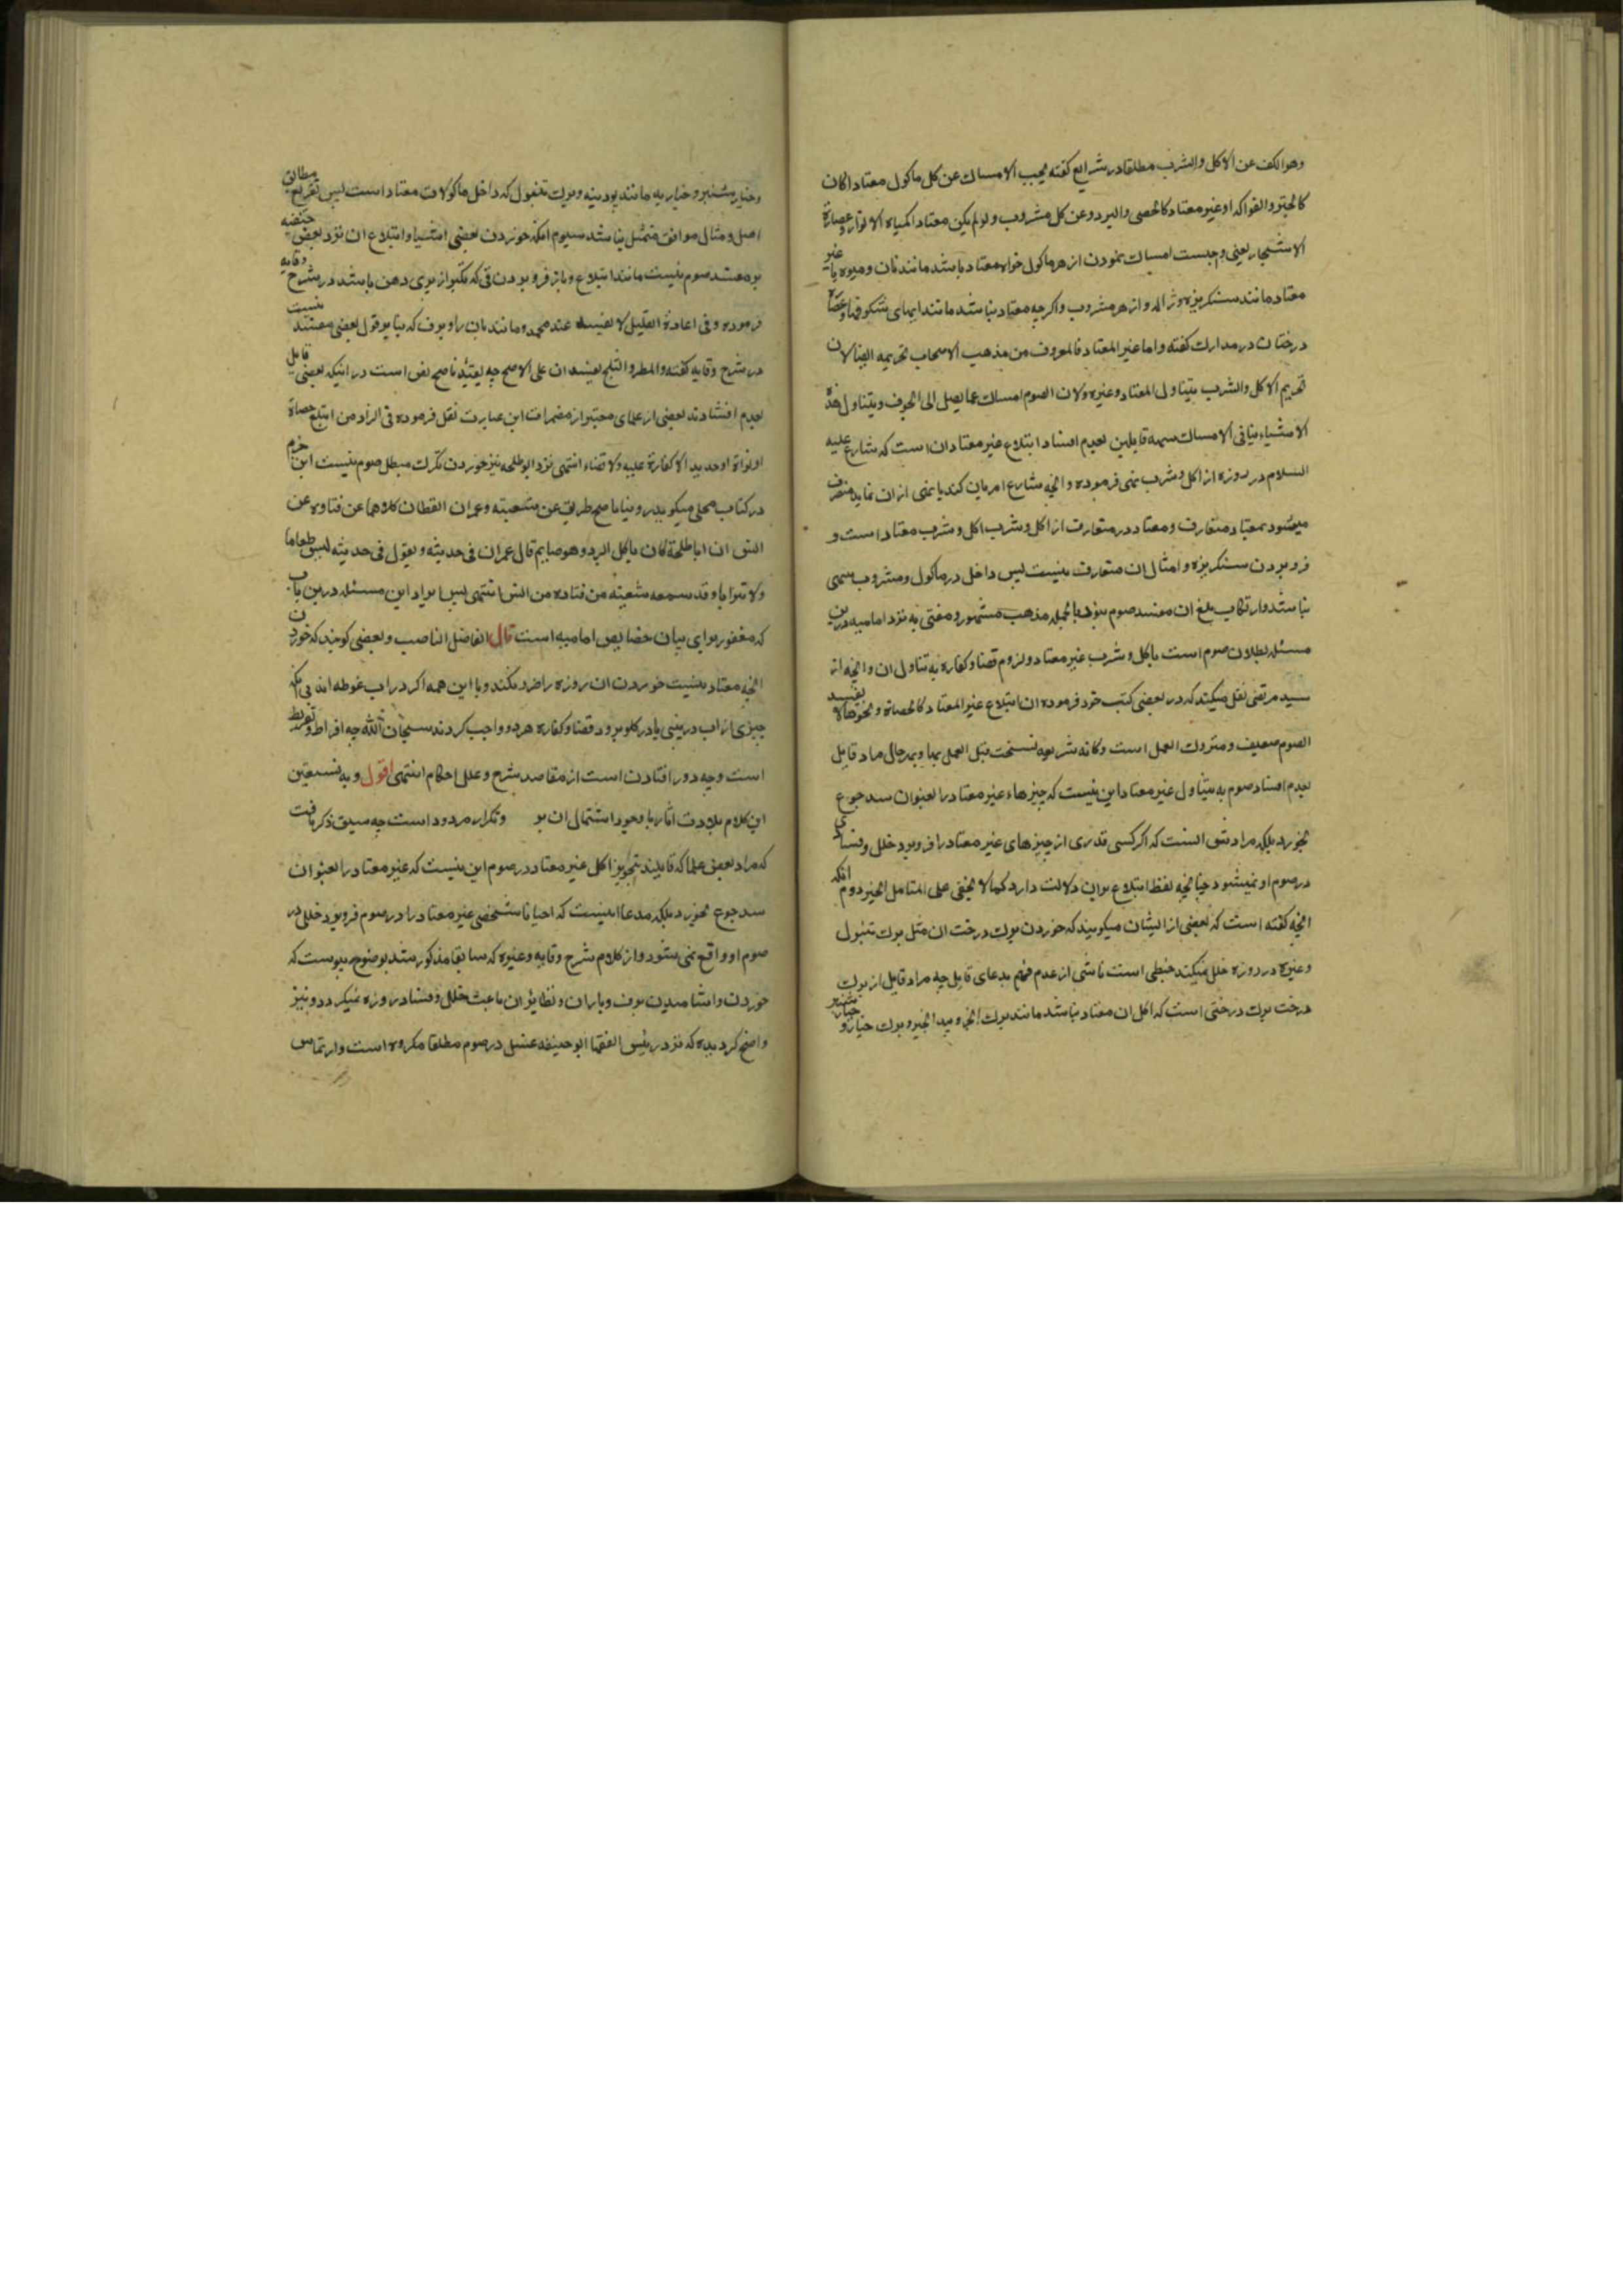 وهو الکف عن الاکل والشرب مطلقا در شرایع کفته یجب الامساک عن کل ماکول معتادا کان
کالخبز و الفواکه او غیر معتاد کالحصی والبرد وعن کل مشروب ولو لم یکن معتادا کمیاه الانوار وعصارة
الاشجار یعنی واجبست امساک نمودن از هر ماکول خواه معتاد باشد مانند نان و میوه یا غیر
معتاد مانند سنکریزه و ژاله و از هر مشروب و اکرچه معتاد نباشد مانند ابهای شکوفها و عصاره
درختان در مدارک کفته و اما غیر المعتاد فالمعروف من مذهب الاصحاب تحریمه ایضا لان
تحریم الاکل والشرب یتناول المعتاد وغیره ولان الصوم امساک عما یصل الی الجوف ویتناول هذه
الاشیاء ینافی الامساک قایلین بعدم افساد ابتلاع غیر معتاد ان است که شارع علیه
السلام در روزه از اکل و شرب نهی فرموده و انچه شارع امر بان کند یا نهی از ان نماید منصرف
میشود بمعتاد متعارف و معتاد در متعارف از اکل و شرب اکل و شرب معتاد است و
فرو بردن سنکریزه و امثال ان متعارف نیست پس داخل در ماکول و مشروب منهی
نباشد و ارتکاب بلع ان مفسد صوم نبود بالجمله مذهب مشهور و مفتی به نزد امامیه درین
مسئله بطلان صوم است باکل و شرب غیر معتاد و لزوم قضا و کفاره به تناول ان و انچه از
سید مرتضی نقل میکنند که در بعضی کتب خود فرموده ان ابتلاع غیر المعتاد کالحصاة و نحوها لا یفسد
الصوم ضعیف و متروک العمل است و کانه شریعه نسخت قبل العمل بها و بهر حال مراد قایل
بعدم افساد صوم به تناول غیر معتاد این نیست که چیزهاء غیر معتاد را بعنوان سد جوع
بخورد بلکه مرادش انست که اکر کسی قدری از چیزهای غیر معتاد را فرو برد خلل و فسادی
در صوم او نمیشود چنانچه لفظ ابتلاع بران دلالت دارد کما لا یخفی علی المتامل الخبیر دوم انکه
انچه کفته است که بعضی از ایشان میکویند که خوردن برک درخت ان مثل برک تنبول
وغیره در روزه خلل نمیکند خبطی است ناشی از عدم فهم مدعای قایل چه مراد قایل از برک
درخت برک درختی است که اکل ان معتاد نباشد مانند برک انجیر و برک خیار و
وخیار شنبر و خیاریه مانند پودینه و برک تنبول که داخل ماکولات معتاد است پس تفریع مطابق
اصل و مثال موافق متمثل نباشد سیوم انکه خوردن بعضی اشیا و ابتلاع ان نزد بعض حنفیه
نیز مفسد صوم نیست مانند ابتلاع و باز فرو بردن قی که کمتر از پری دهن باشد در شرح وقایه
فرموده و فی اعادة القلیل لا یفسد عند محمد و مانند باران و برف که بنا بر قول بعضی مفسد نیست
در شرح وقایه کفته والمطر والثلج یفسدان علی الاصح چه تقیید باصح نص است در اینکه بعضی قایل
بعدم افسادند بعضی از علمای معتبر از مضمرات این عبارت نقل فرموده فی الزاد من ابتلع حصاة
او نواة او حدیدا لا کفارة علیه ولا قضاء انتهی نزد ابو طلحه نیز خوردن تکرک مبطل صوم نیست ابن حزم
در کتاب محلی میکوید روینا باصح طریق عن شعبته وعمران القطان کلاهما عن قتاده عن
انس ان ابا طلحة کان یاکل البرد وهو صایم قال عمران فی حدیثه ویقول فی حدیثه لیس طعاما
ولا شرابا وقد سمعه شعبته من قتاده من انس انتهی پس ایراد این مسئله درین باب
که معقود برای بیان خصایص امامیه است قال الفاضل الناصب و بعضی کویند که خوردن
انچه معتاد نیست خوردن ان روزه را ضرر نکند و با این همه اکر در اب غوطه اند بی انکه
چیزی از اب در بینی یا در کلو برود قضا و کفاره هر دو واجب کردند سبحان الله چه افراط و تفریط
است و چه دور افتادن است از مقاصد شرع و علل احکام انتهی اقول و به نستعین
این کلام بلادت اثار با وجود اشتمال ان بر و تکرار مردود است چه سبق ذکر یافت
که مراد بعض علما که قایلند بتجویز اکل غیر معتاد در صوم این نیست که غیر معتاد را بعنوان
سد جوع بخورد بلکه مدعا اینست که احیانا شخصی غیر معتاد را در صوم فرو برد خللی در
صوم او واقع نمی شود و از کلام شرح وقایه وغیره که سابقا مذکور شد بوضوح پیوست که
خوردن و اشامیدن برف و باران و نظایر ان باعث خلل و فساد روزه نمیکردد و نیز
واضح کردیده که نزد رئیس الفقها ابو حنیفه غسل در صوم مطلقا مکروه است و ارتماس